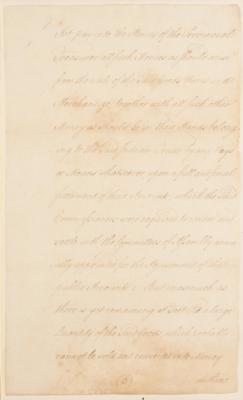 for pay into the Hands of the Provincial
Treasurer all such Monies as should arise
from the Sale of the said Goods Wares and
Merchandize, together with all such other
Money as should be in their Hands belong
ing to the said Indian Trade by any Ways
or Means whatsoever upon a full and final
settlement of their Accounts, which the said
Commissioners were required to render and
settle with the Committees of Assembly annu
ally appointed for the Adjustment of the
public Accounts. But inasmuch as
there is yet remaining at Fort a large
Quantity of the said Goods which probably
cannot be sold and converted into Money
(3)
without